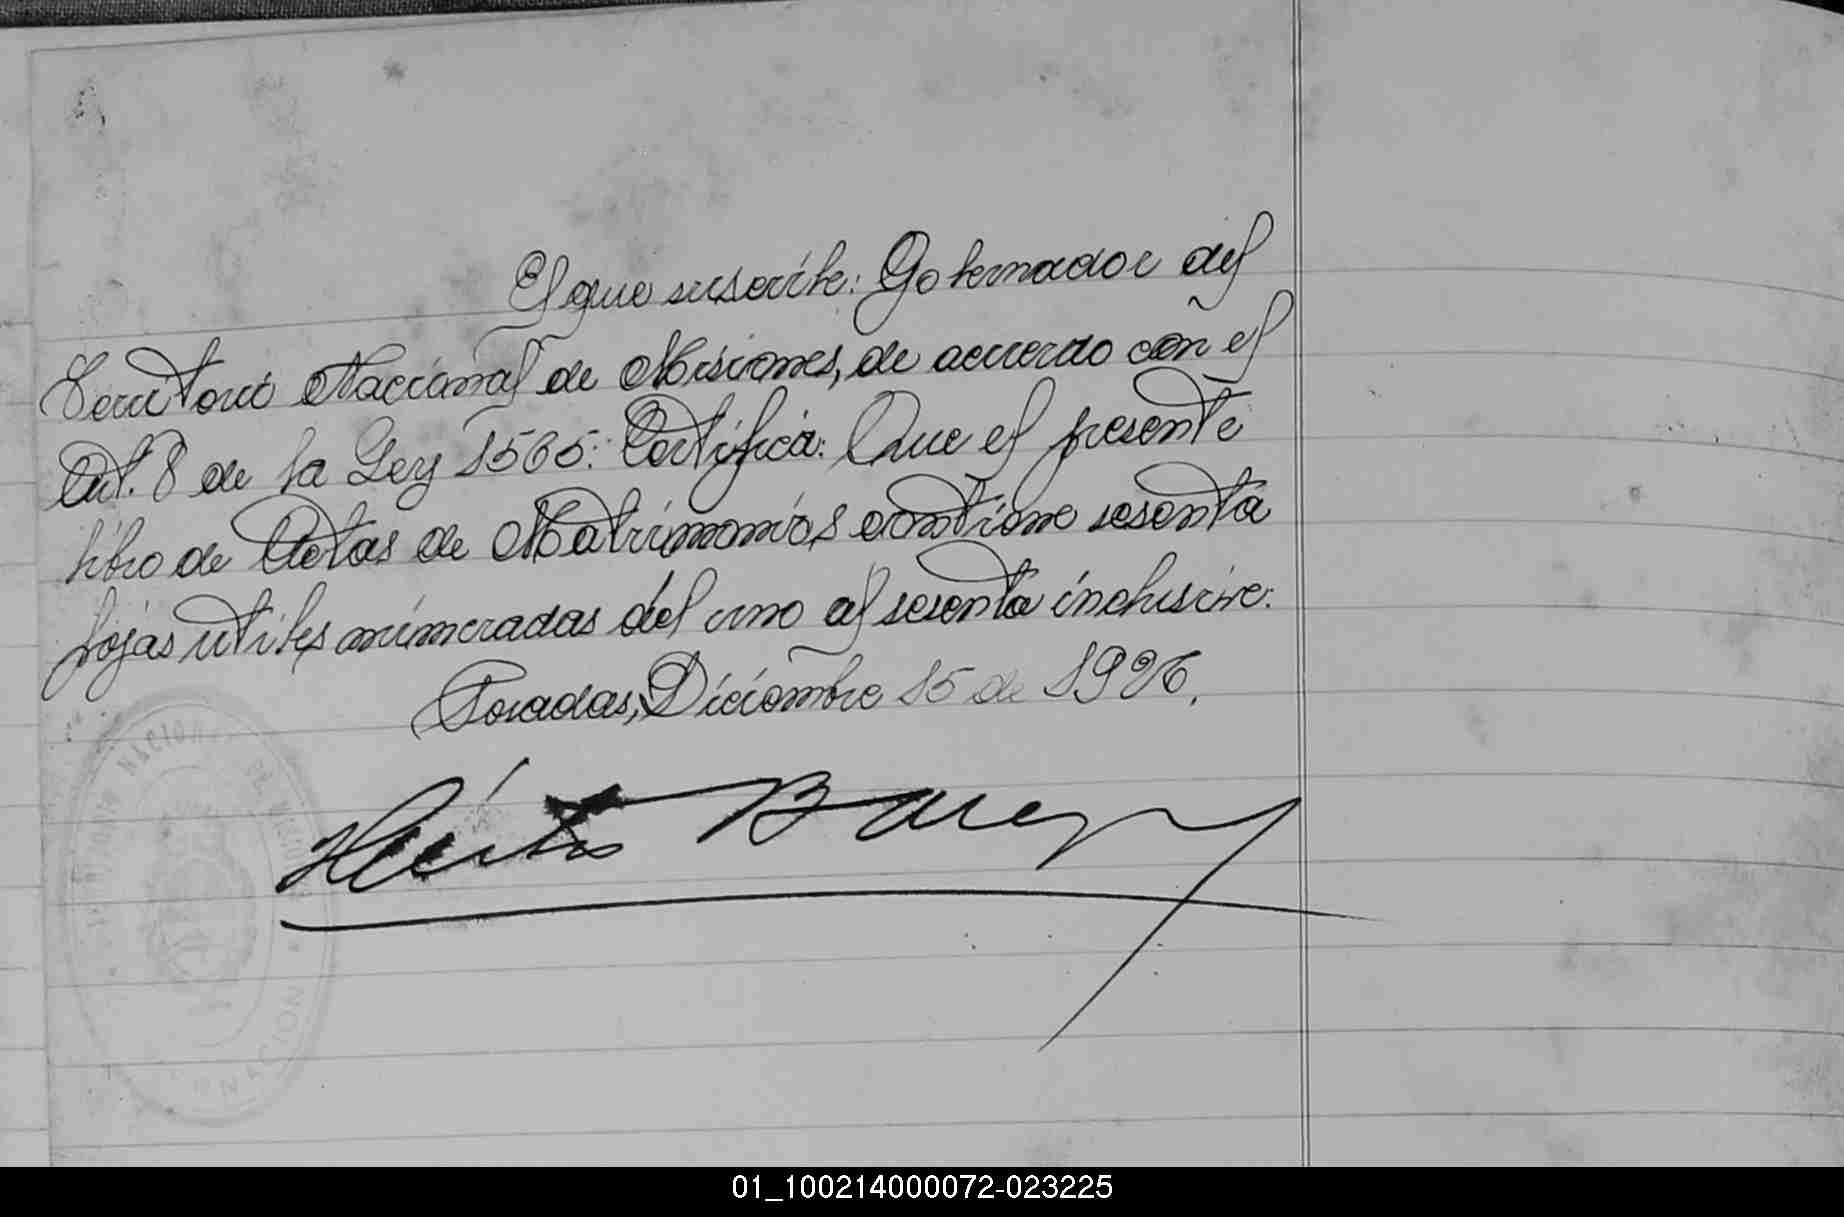 El que suscribe: Gobernador del
Territorio Nacional de Misiones, de acuerdo con el
Art. 8 de la Ley 1565: Certifica: Que el presente
libro de Actas de Matrimonios contiene sesenta
fojas utiles numeradas del uno al sesenta inclusive:
Posadas, Diciembre 15 de 1926.
Héctor Barreyro
NACIONAL DE
GOBERNACION
01_100214000072-023225